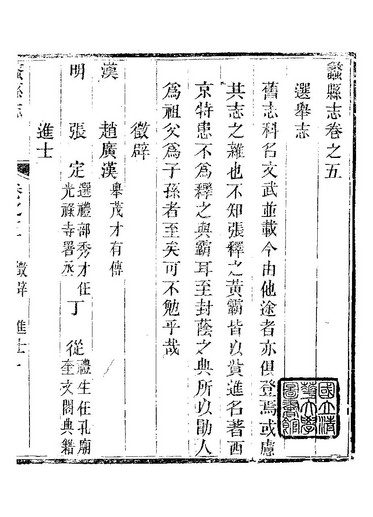 蠡縣志卷之五
選舉志
舊志科名文武並載今由他途者亦俱登焉或慮
其志之雜也不知張釋之黃霸皆以貲進名著西
京特患不為釋之與霸耳至封蔭之典所以勖人
為祖父為子孫者至矣可不勉乎哉
徵辟
漢 趙廣漢 舉茂才有傳
明 張定 選禮部秀才任光祿寺署丞 丁從 禮生任孔廟奎文閣典籍
進士
蠡縣志 卷之五 徵辟 進士 一
國立清華大學圖書館